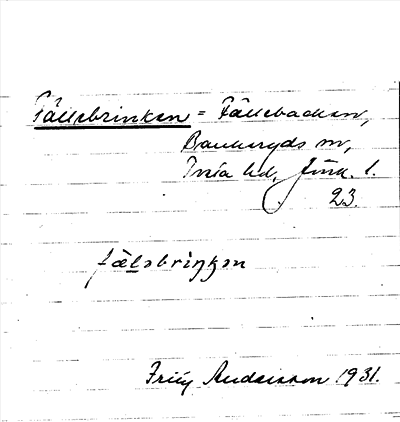 Fällsbrinken = Fällebacken,
Bankeryds sn,
Tveta hd, Jönk. l.
23.
fälsbriŋkən
Fritz Andersson 1931.